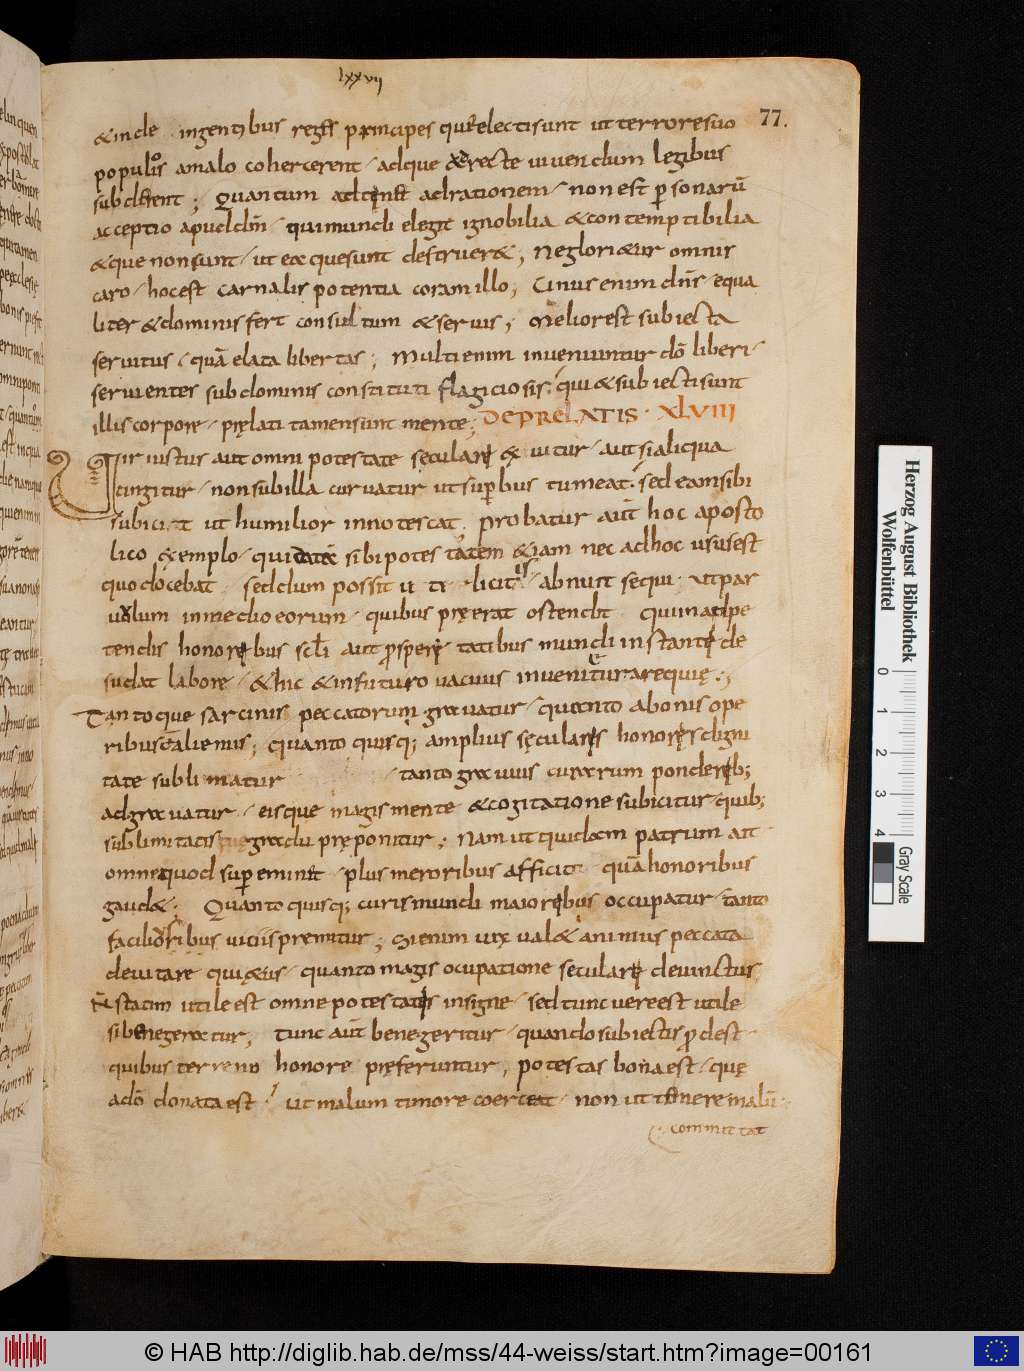 lxxvii
77.
&inde in gentibus reges principes que electi sunt ut terrore suo
populos a malo cohercerent adque ad recte vivendum legibus
subderent ; Quantum adtenet ad rationem non est psonarū
acceptio apud dm̄ qui mundi elegit ignobilia & contemptibilia
& que non sunt ut ea que sunt destruer& ; Ne glori&ur omnis
caro hoc est carnalis potentia coram illo ; Unus enim dn̄s equa
liter & dominis fert consultum & servis ; Melior est subiecta
servitus quā elata libertas ; Multi enim inveniuntur dō liberi
servientes sub dominis constituti flagiciosis qui & subiecti sunt
illis corpore pręlati tamen sunt mente ; DE PRELATIS · XLVIII
Vir iustus aut omni potestate sęculare exuitur aut si aliqua
cingitur non sub illa curvatur ut supbus tumeat sed eam sibi
subicit ut humilior innotescat ; probatur aūt hoc aposto
lico exemplo qui data sibi potestatem & iam nec ad hoc usus est
quo docebat sed dum possit uti licitis abnuit se qui ut par
vulum in medio eorum quibus pręerat ostendit qui in adpe
tendis honoribus scl̄i aut prosperetatibus mundi instante de
sudat labore & hic & in futuro vacuus invenitur a requię ;
Tantoque sarcinis peccatorum gravatur quanto a bonis ope
ribus ē alienus ; quanto quisq; amplius sęculares honoris digni
tate sublimatur tanto gravius curarum ponderib;
adgravatur eisque magis mente & cogitatione subicitur quib;
sublimitatis gradu pręponitur ; Nam ut quidam patrum ait
omne quod supeminet plus meroribus afficit quā honoribus
gaud& ; Quanto quisq; curis mundi maioribus occupatur tanto
facilioribus vitiis premitur ; Si enim vix val& animus peccata
devitare qui&us quanto magis ocupatione seculare devinctus
N̄ statim utile est omne potestatis insigne sed tunc vere est utile
si bene geratur ; tunc aūt bene geritur quando subiectis pdest
quibus terreno honore pręferuntur ; potestas bona est quę
a dō donata est ut malum timore coerceat non ut temere malū
committat
Herzog August Bibliothek
Wolfenbüttel
0 1 2 3 4
Gray Scale
© HAB http://diglib.hab.de/mss/44-weiss/start.htm?image=00161